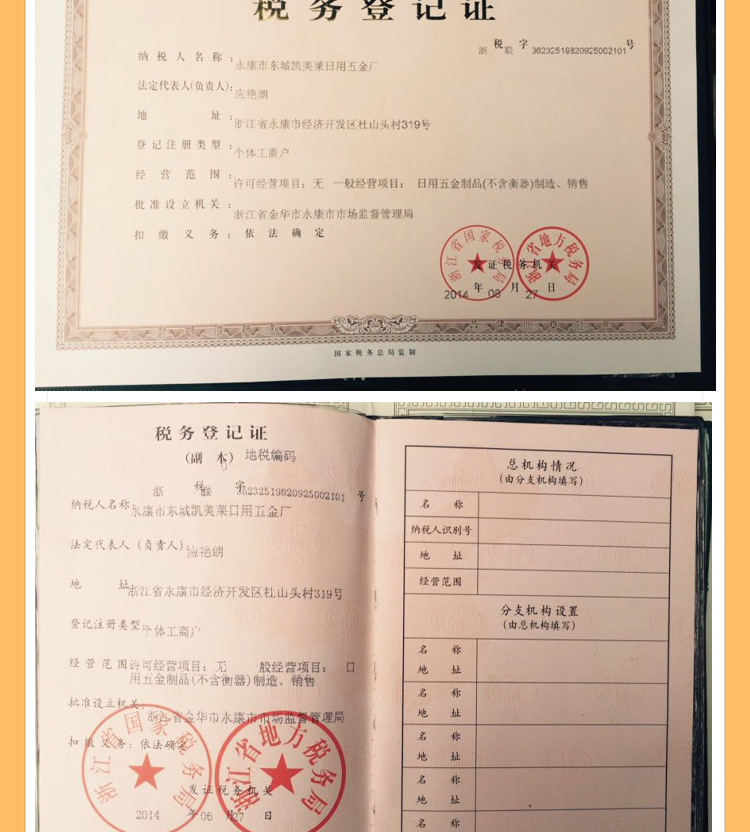 税务登记证
浙 税 联 字 36232519820925002101号
纳税人名称：永康市东城凯美莱日用五金厂
法定代表人(负责人)：应艳朗
地 址：浙江省永康市经济开发区杜山头村319号
登记注册类型：个体工商户
经营范围：许可经营项目：无 一般经营项目： 日用五金制品(不含衡器)制造、销售
批准设立机关：浙江省金华市永康市市场监督管理局
扣缴义务：依法确定
浙江省国家税务局
浙江省地方税务局
发证税务机关
2014 年 06 月 27 日
国家税务总局监制
税务登记证
(副 本) 地税编码
浙 税 联 字 36232519820925002101 号
纳税人名称：永康市东城凯美莱日用五金厂
法定代表人（负责人）：应艳朗
地 址：浙江省永康市经济开发区杜山头村319号
登记注册类型：个体工商户
经营范围：许可经营项目：无 一般经营项目： 日
用五金制品(不含衡器)制造、销售
批准设立机关：浙江省金华市永康市市场监督管理局
扣缴义务：依法确定
浙江省国家税务局
浙江省地方税务局
发证税务机关
2014 年06 月27 日
总机构情况
(由分支机构填写)
名 称
纳税人识别号
地 址
经营范围
分支机构设置
(由总机构填写)
名 称
地 址
名 称
地 址
名 称
地 址
名 称
地 址
名 称